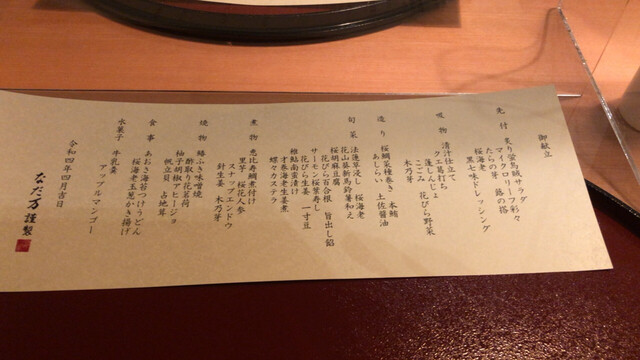 御献立
先付 炙り蛍烏賊サラダ
マイクロリーフ彩々
たらの芽 蕗の薹
桜海老
黒七味ドレッシング
吸物 清汁仕立て
クエ葛打ち
蓬しんじょ
こごみ 花びら野菜
木乃芽
造り 桜鯛菜種巻き 本鮪
あしらい 土佐醤油
旬菜 法蓮草浸し 桜海老
花山葵新馬鈴薯和え
桜胡麻豆腐
花びら百合根 旨出し餡
サーモン桜葉寿し
花びら生姜 一寸豆
稚鮎南蛮漬け
才巻海老生姜煮
蝶々カステラ
煮物 恵比寿鯛煮付け
里芋 桜花人参
スナップエンドウ
針生姜 木乃芽
焼物 鰆ふき味噌焼
酢取り花茗荷
柚子胡椒アヒージョ
帆立貝 占地茸
食事 あおさ海苔つけうどん
桜海老玉葱かき揚げ
水菓子 牛乳羹
アップルマンゴー
令和四年四月吉日
なだ万 謹製